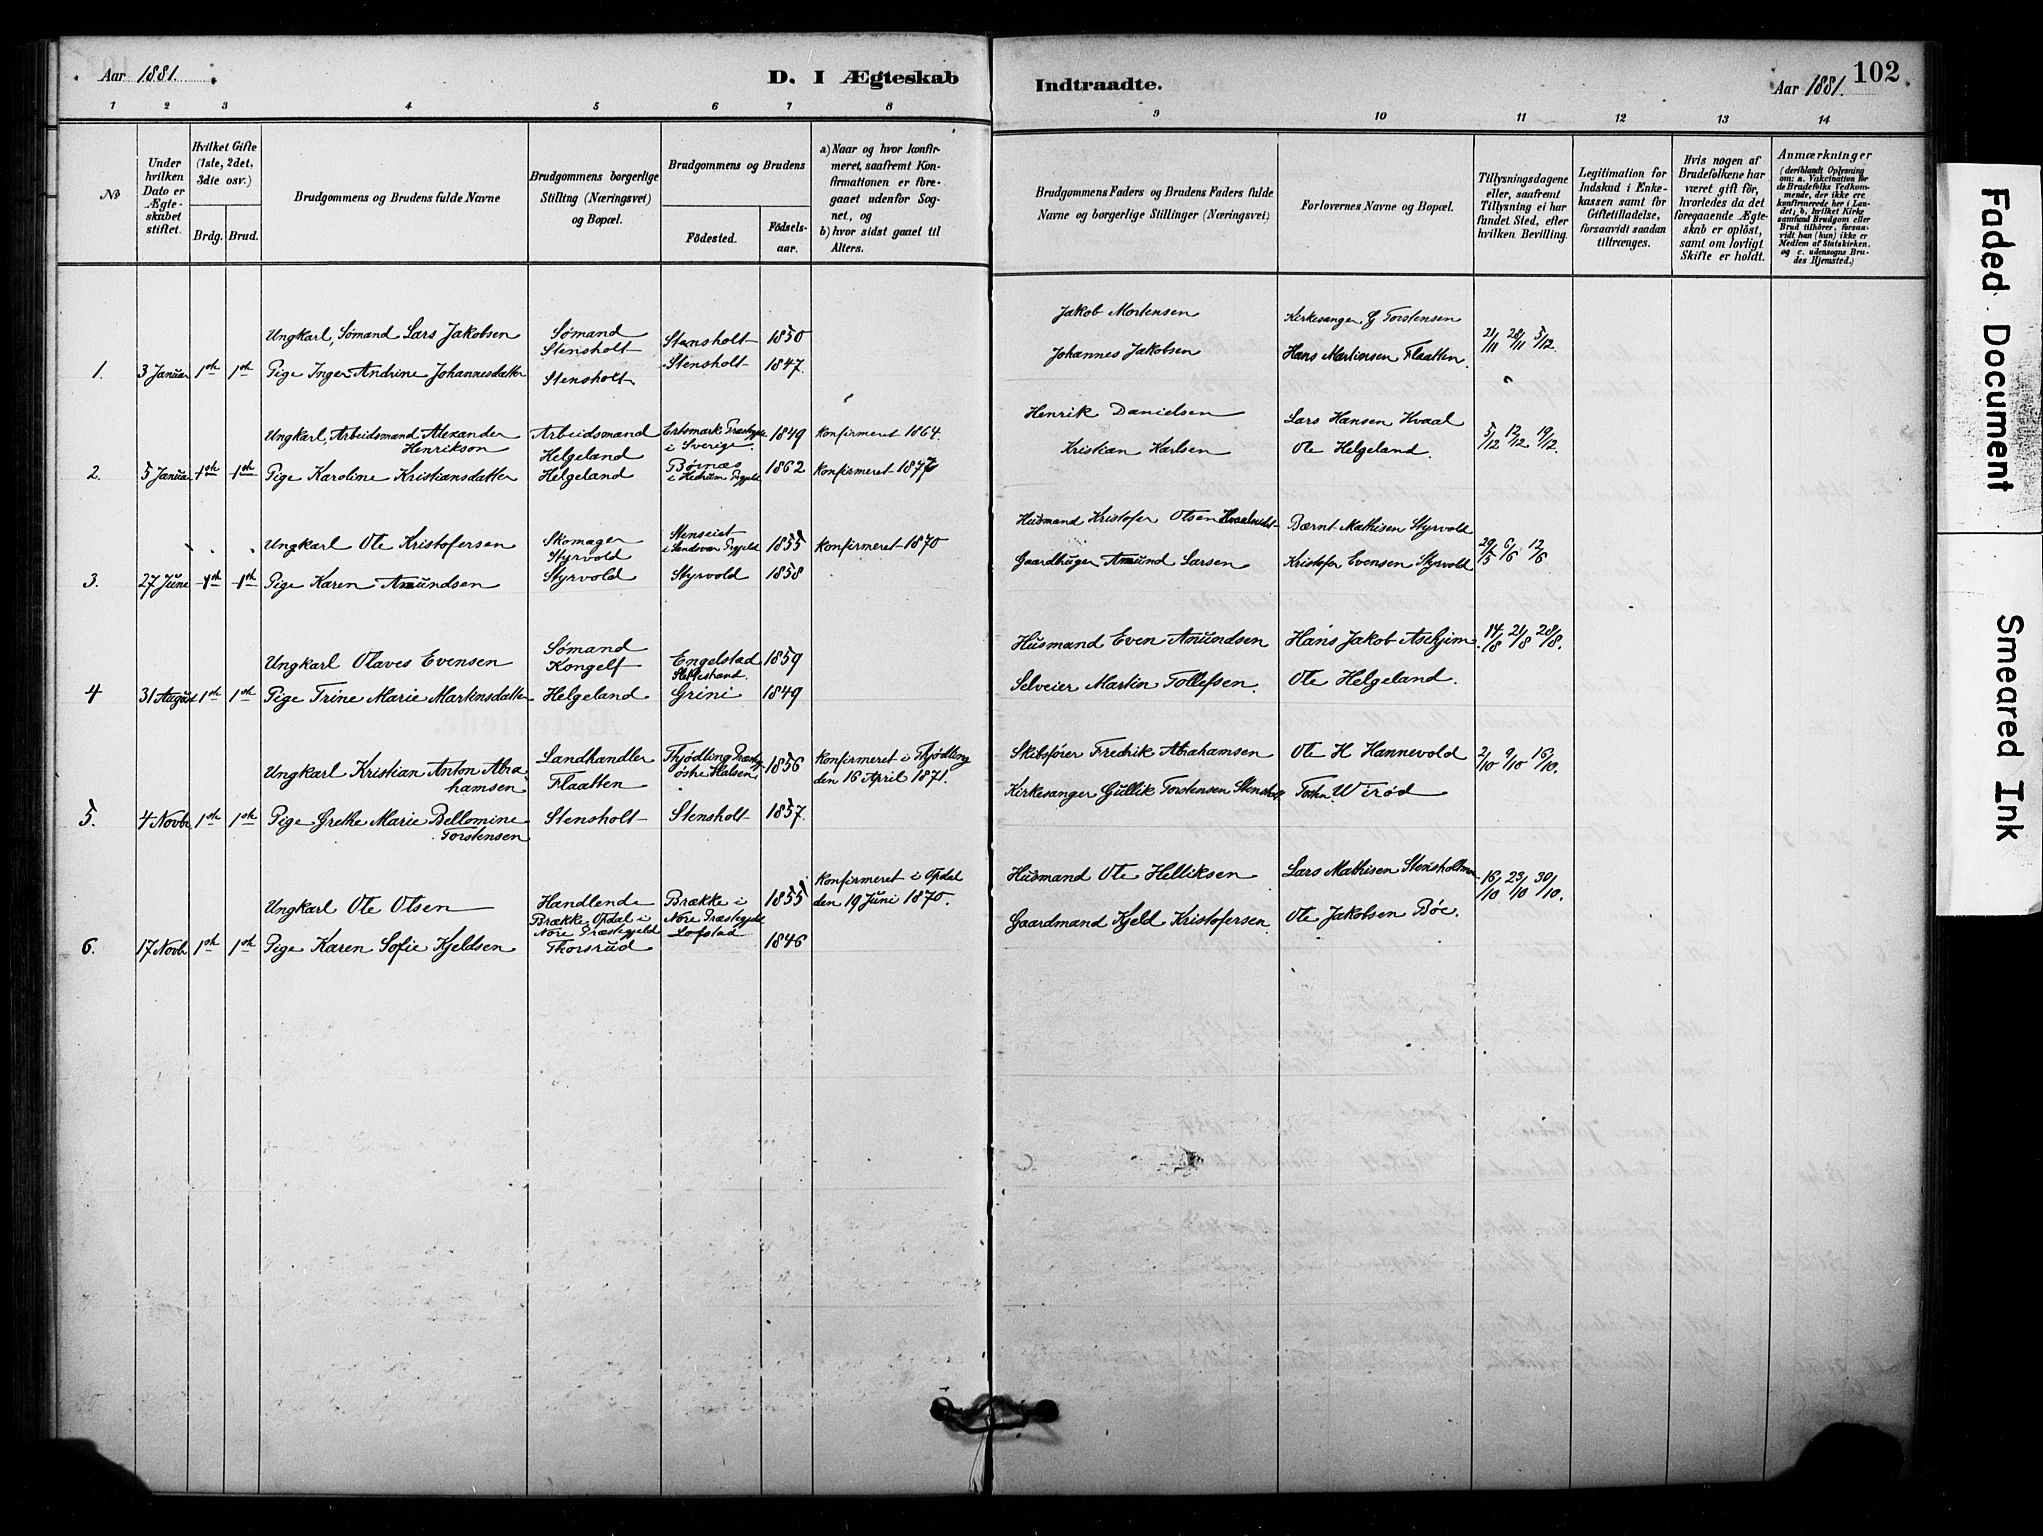 Aar 1881.
D. I Ægteskab
Indtraadte.
Aar 1881.
102
1 2 3 4 5 6 7 8
9 10 11 12 13 14
No
Under hvilken Dato er Ægteskabet stiftet.
Hvilket Gifte (1ste, 2det, 3die osv.)
Brdg. Brud.
Brudgommens og Brudens fulde Navne
Brudgommens borgerlige Stilling (Næringsvei) og Bopæl.
Brudgommens og Brudens
Födested.
Födselsaar.
a) Naar og hvor konfirmeret, saafremt Konfirmationen er foregaaet udenfor Sognet, og
b) hvor sidst gaaet til Alters.
Brudgommens Faders og Brudens Faders fulde Navne og borgerlige Stillinger (Næringsvei)
Forlovernes Navne og Bopæl.
Tillysningsdagene eller, saafremt Tillysning ei har fundet Sted, efter hvilken Bevilling.
Legitimation for Indskud i Enkekassen samt for Giftetilladelse, forsaavidt saadan tiltrænges.
Hvis nogen af Brudefolkene har været gift för, hvorledes da det foregaaende Ægteskab er oplöst, samt om lovligt Skifte er holdt.
Anmærkninger
(deriblandt Oplysning om: a. Vakcination for de Brudefolks Vedkommende, der ikke ere konfirmerede her i Landet; b. hvilket Kirkesamfund Brudgom eller Brud tilhörer, forsaavidt han (hun) ikke er Medlem af Statskirken. og c. udensogns Brudes Hjemsted.)
Ungkarl, Sømand Lars Jakobsen Sømand Stensholt Stensholt 1850 Jakob Mortensen Kirkesanger G Torstensen 21/11 28/11 5/12.
1. 3 Januar 1ste 1ste Pige Inger Andrine Johannesdatter Stensholt Stensholt 1847 Johannes Jakobsen Hans Martinsen Flaatten.
Ungkarl, Arbeidsmand Alexander Henrikson Arbeidsmand Helgeland i Sverige 1849 Konfirmeret 1864. Henrik Danielsen Lars Hansen Kvaal 5/12 12/12 19/12.
2. 5 Januar 1ste 1ste Pige Karoline Kristiansdatter Helgeland Børnæs i Hedrum Prgjeld 1862 Konfirmeret 1877 Kristian Karlsen Ole Helgeland.
Ungkarl Ole Kristofersen Skomager Styrvold i Sandsvær Prgjeld 1855 Konfirmeret 1870 Husmand Kristofer Olsen Bærnt Mathisen Styrvold 29/5 6/6 12/6
3. 27 Juni 1ste 1ste Pige Karen Amundsen Styrvold Styrvold 1858 Gaardbruger Amund Larsen Kristofer Evensen Styrvold
Ungkarl Olaves Evensen Sømand Kongelf Engelstad 1859 Husmand Even Amundsen Hans Jakob Askjem 14/8 21/8 28/8.
4 31 August 1ste 1ste Pige Trine Marie Martinsdatter Helgeland Grini 1849 Selveier Martin Tollefsen. Ole Helgeland.
Ungkarl Kristian Anton Abrahamsen Landhandler Flaatten Thjødling Præstg. østre Halsen 1856 Konfirmeret i Thjødling den 16 April 1871. Skibsfører Fredrik Abrahamsen Ole H Hannevold 2/10 9/10 16/10.
5. 4 Novbr 1ste 1ste Pige Grethe Marie Bellomine Torstensen Stensholt Stensholt 1857 Kirkesanger Gullik Torstensen Stensholt Wirød
Ungkarl Ole Olsen Handlende Brække Opdal i Nore Præstegjeld Brække i Nore Præstegjeld 1855 Konfirmeret i Opdal den 19 Juni 1870. Husmand Ole Helliksen Lars Mathisen Stensholt 16/10 23/10 30/10.
6. 17 Novbr 1ste 1ste Pige Karen Sofie Kjeldsen Thorsrud Lofstad 1846 Gaardmand Kjeld Kristofersen Ole Jakobsen Bøe.
Faded Document
Smeared Ink